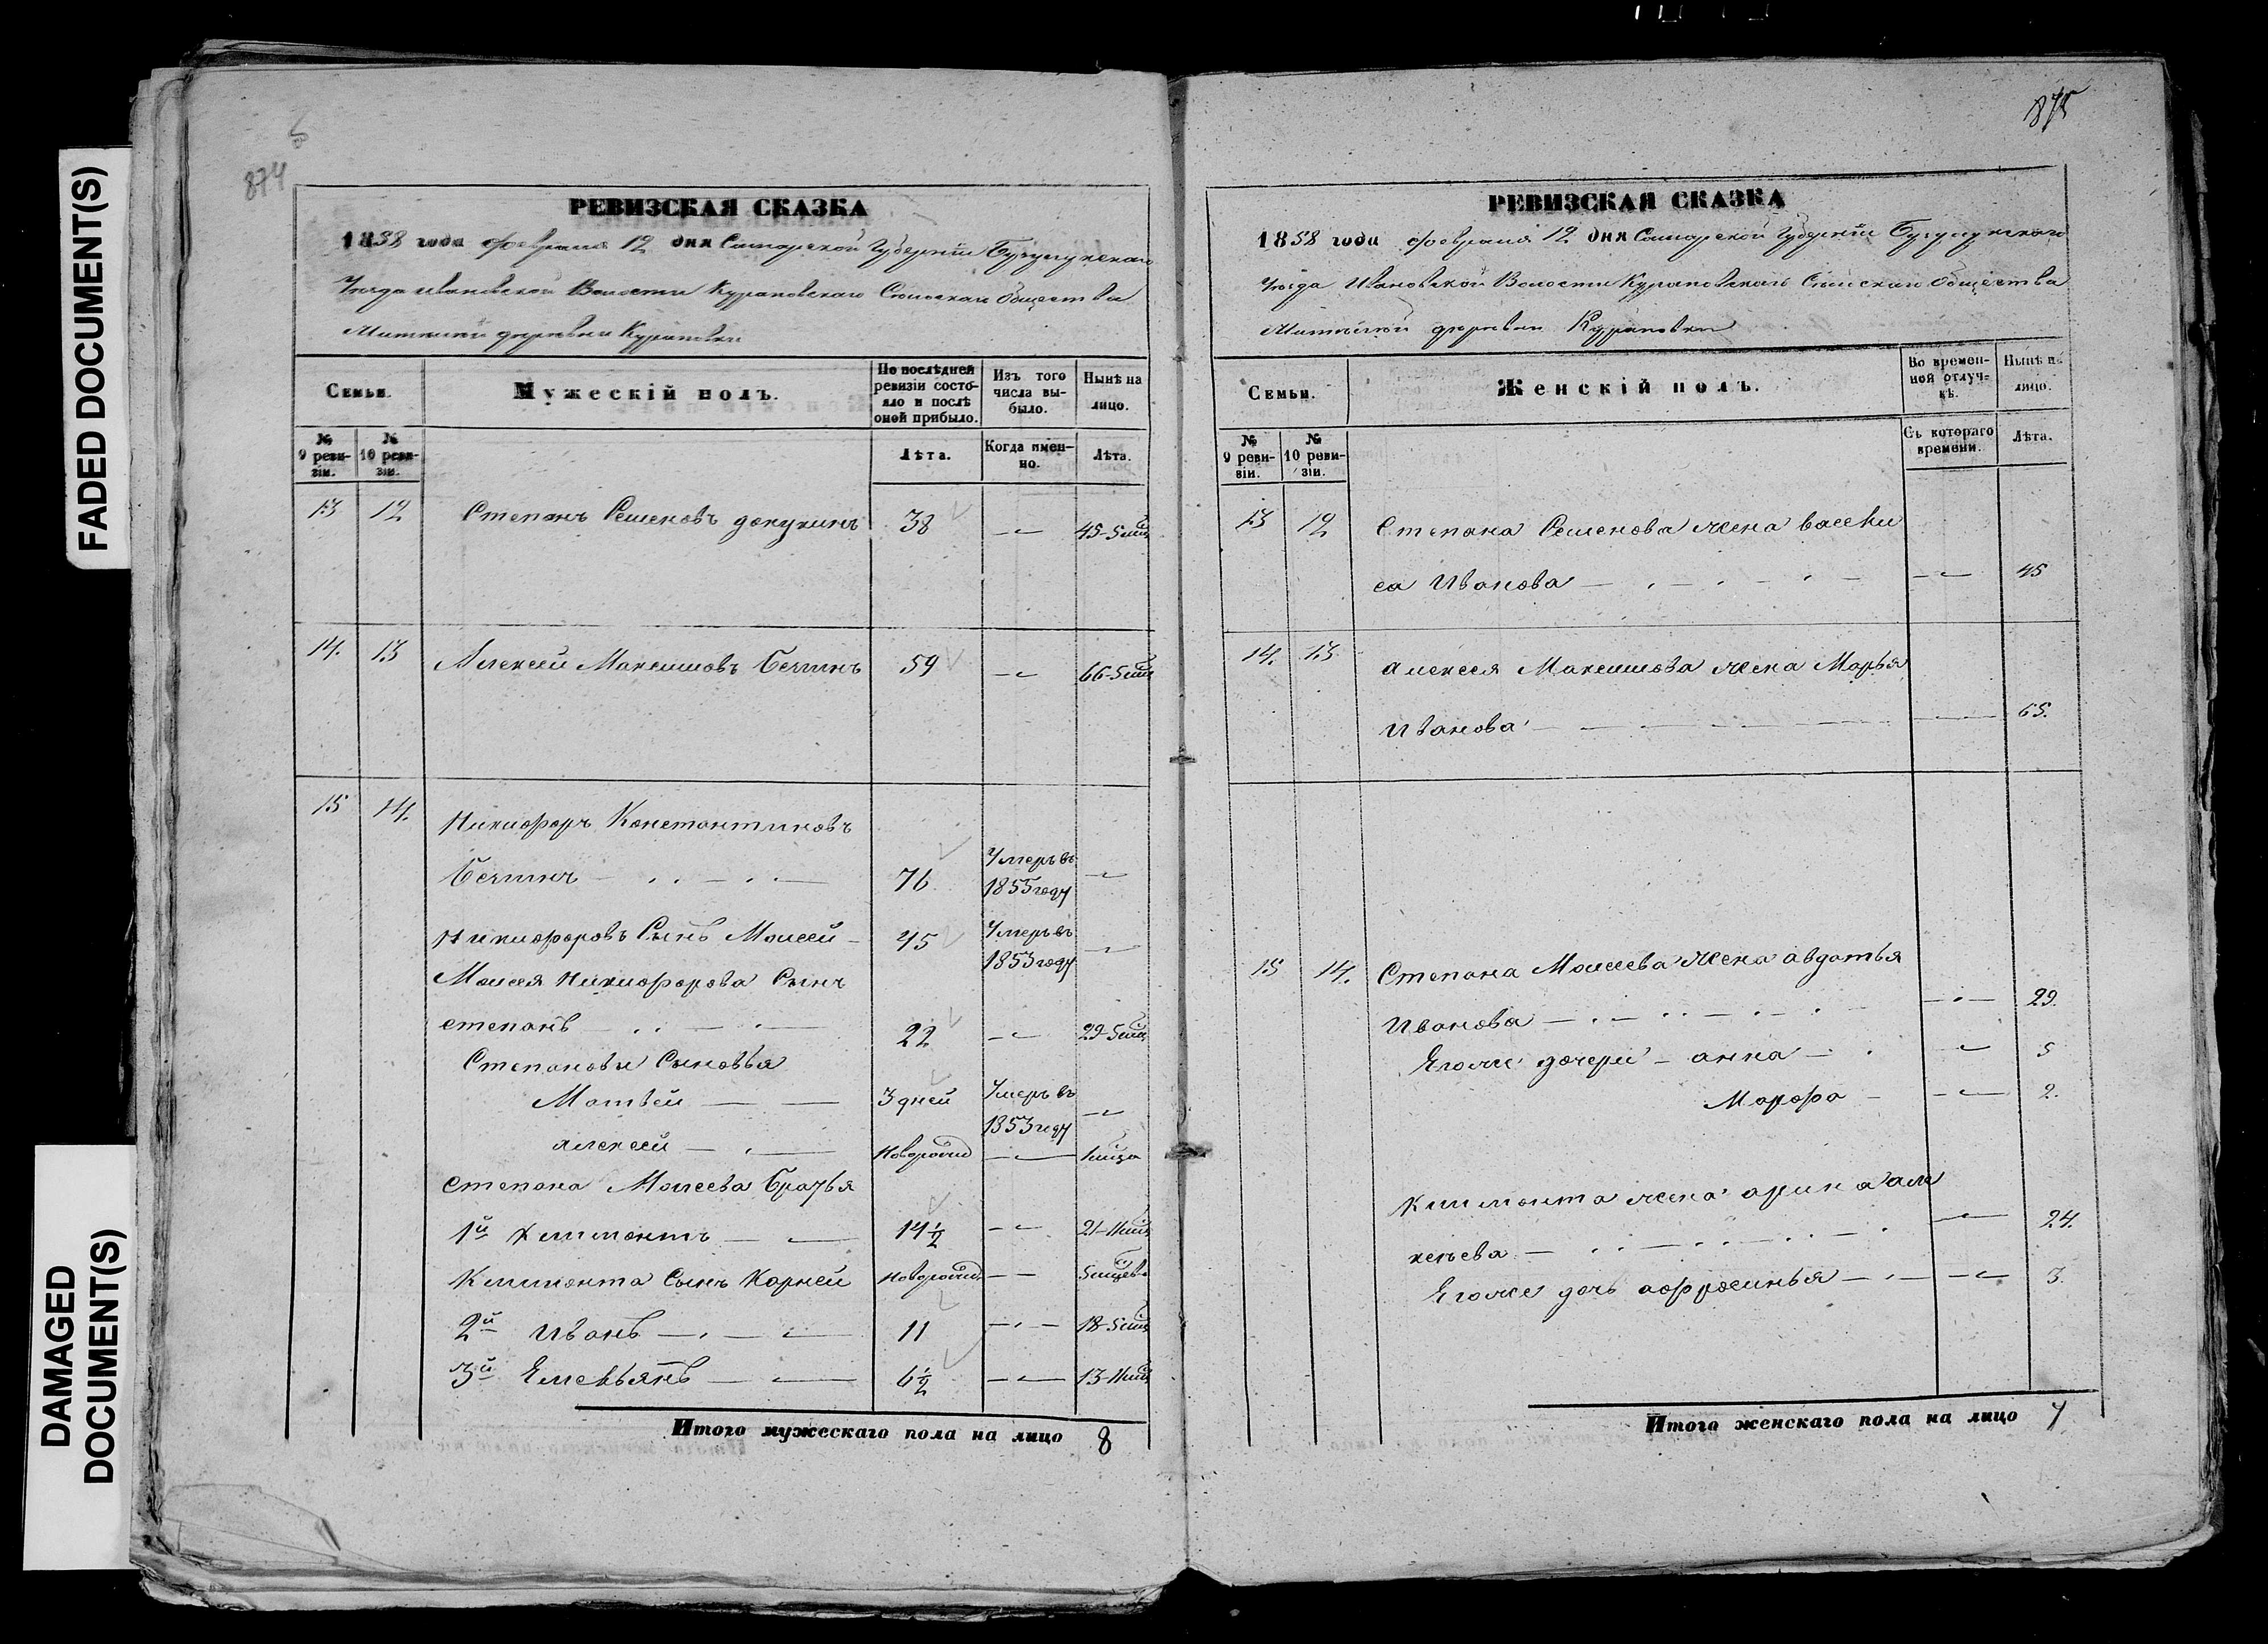 FADED DOCUMENT(S)
DAMAGED
DOCUMENT(S)
874
РЕВИЗСКАЯ СКАЗКА
1858 года февраля 12 дня Самарской Губернiи Бузулукскаго
Уѣзда Ивановской Волости Курановскаго Сельскаго Общества
деревни Курановки
Семьи.
Мужескiй полъ.
По послѣдней
ревизiи состо-
яло и послѣ
оней прибыло.
Изъ того
числа вы-
было.
Нынѣ на
лицо.
№
9 реви-
зiи.
№
10 реви-
зiи.
Лѣта.
Когда имен-
но.
Лѣта.
13 12 Степанъ Семеновъ докукинъ 38 45-5мѣц
14. 13 Алексей Максимовъ Бечинъ 59 66-5мѣц
15 14. Никифоръ Константиновъ
Бечинъ 76 Умеръ въ
1855 году
Никифоровъ Сынъ Моисей 45 Умеръ въ
1853 году
Моисея Никифорова Сынъ
степанъ 22 29-5мѣц
Степановы Сыновья
Матвей 3 дней Умеръ въ
1853 году
алексей Новорожд 1мѣца
степана Моисеева Братья
1й Климонтъ 14½ 21-11мѣц
Климонта Сынъ Карней новорожд 5мѣцев
2й Иванъ 11 18-5мѣц
3й Емельянъ 6½ 13-11мѣц
Итого мужескаго пола на лицо 8
875
РЕВИЗСКАЯ СКАЗКА
1858 года февраля 12 дня Самарской Губернiи Бузулукскаго
Уѣзда Ивановской Волости Курановскаго Сельскаго Общества
деревни Курановки
Семьи.
Женскiй полъ.
Во времен-
ной отлуч-
кѣ.
Нынѣ на
лицо.
№
9 реви-
зiи.
№
10 реви-
зiи.
Съ котораго
времени.
Лѣта.
13 12 Степана Семенова жена васели
са Иванова 45
14. 13 алексея Максимова жена Марья
Иванова 65.
15 14. Степана Моисеева жена авдотья
Иванова 29.
Его же дочери - анна 5
Марфа 2.
Климонта жена арина але
ксеева 24.
Его же дочь афросинья 3
Итого женскаго пола на лицо 7